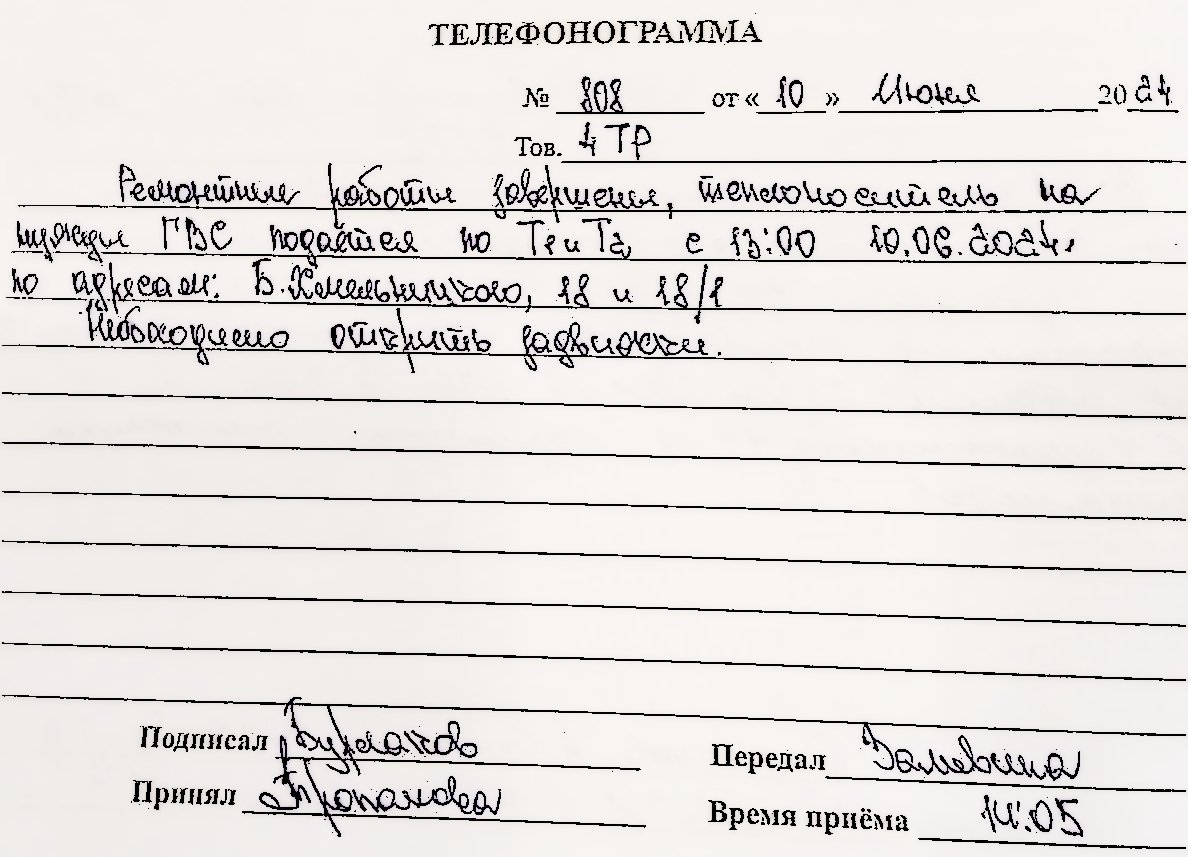 ТЕЛЕФОНОГРАММА
№ 808 от « 10 » Июня 2024
Тов. 4 ТР
Ремонтные работы завершены, теплоноситель на
нужды ГВС подаётся по Т1 и Т2 с 13:00 10.06.2024.
по адресам: Б.Хмельницкого, 18 и 18/1
Необходимо открыть задвижки.
Подписал Бурлаков Передал
Принял Время приёма 14:05